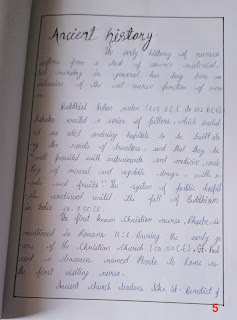 Ancient history
The early history of nurses
suffers from a lack of source material,
but nursing in general has long been an
extension of the wet nurse function of
women
Buddhist Indian ruler (268 BC to 232 BC)
Ashoka erected a series of pillars, which included
an edict ordering hospitals to be built along
the routes of travelers, and that they be
"well provided with instruments and medicine, consis-
ting of mineral and vegetable drugs, with
roots and fruits" The system of public hospitals
continued until the fall of Buddhism
in India ca. 750 CE.
The first known Christian nurse, Phoebe, is
mentioned in Romans 16:1. During the early
years of the Christian Church (ca. 50 CE), St. Paul
a deaconess named Phoebe to Rome as
the first visiting nurse.
Ancient church leaders like St. Benedict of
5